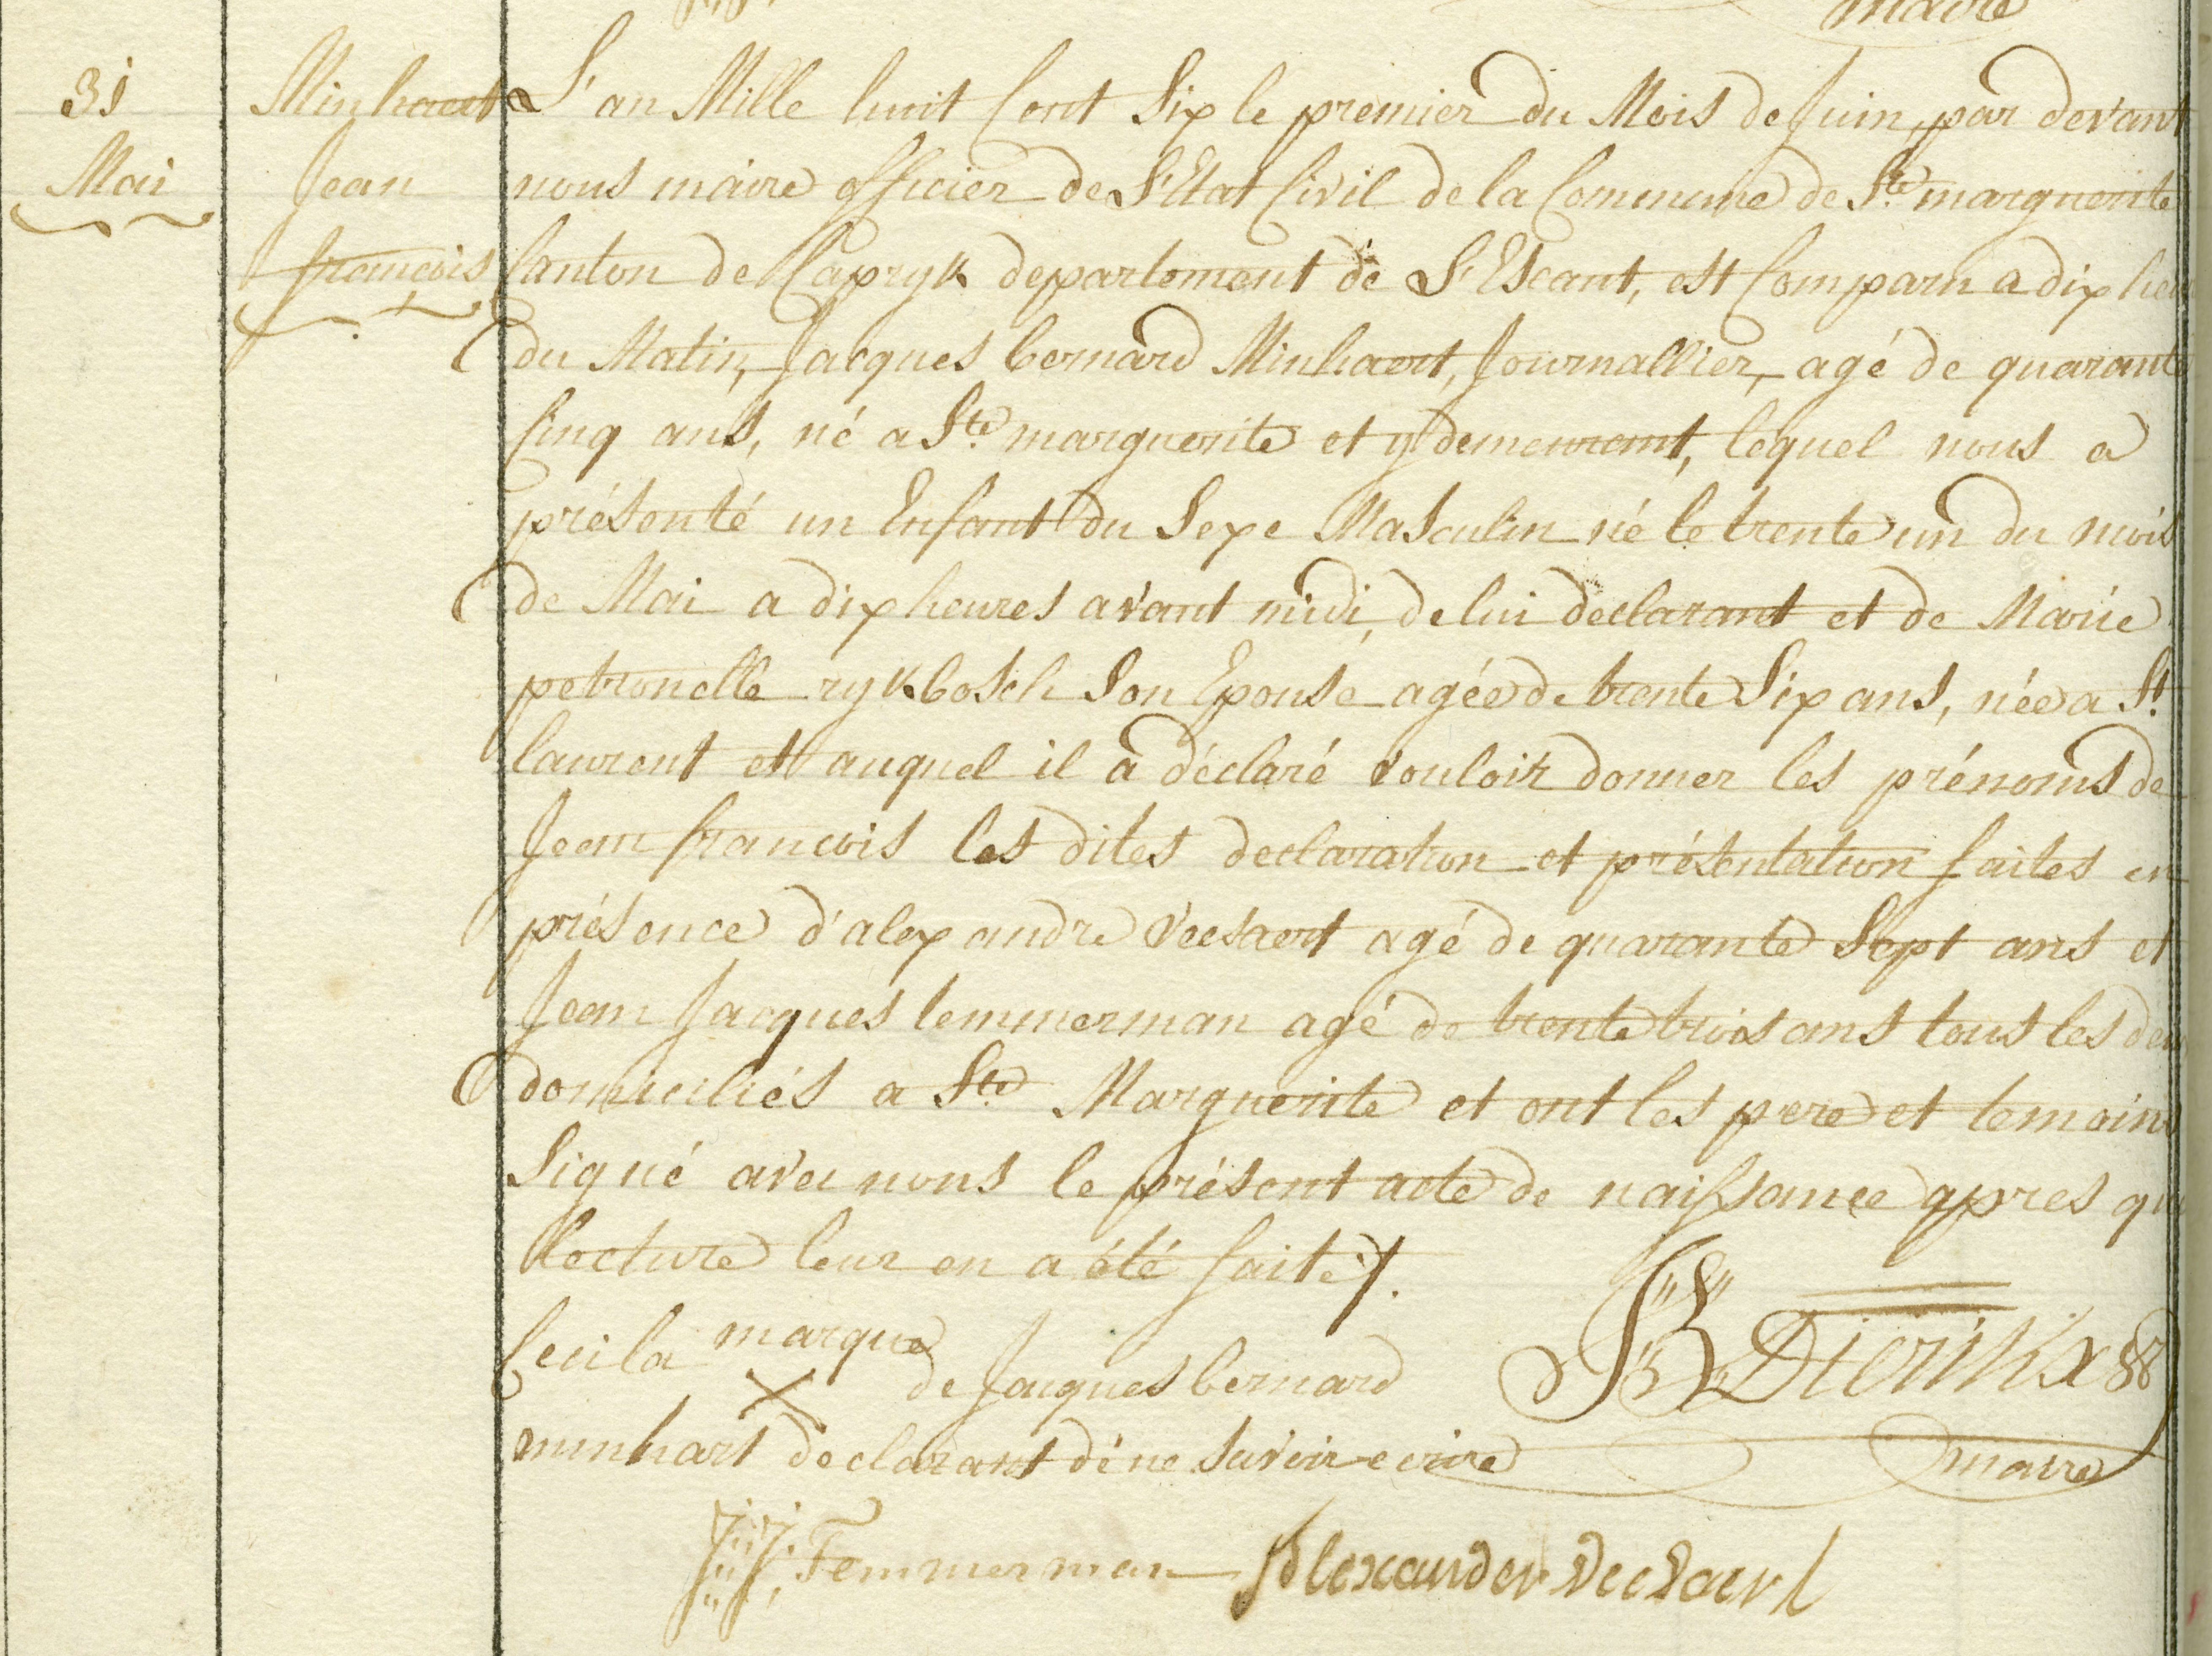 maire
31
Mai
Minhaert
Jean
francois
L'an Mille huit Cent Six le premier du Mois de Juin, par devant
nous maire officier de L'Etat Civil de la Commune de Ste. marguerite
Canton de Capryk departement de L'Escaut, est Comparu a dix heu
du Matin, Jacques bernard Minhaert, Journallier, agé de quarante
Cinq ans, né a Ste. marguerite et y demeurant, lequel nous a
présenté un Enfant du Sexe Masculin né le trente un du mois
de Mai a dix heures avant midi, de lui declarant et de Marie
petronelle rykbosch Son Epouse agée de trente Six ans, née a St.
laurent et auquel il a déclaré vouloir donner les prénoms de
Jean francois les dites declaration et présentation faites en
présence d'alexandre Veesaert agé de quarante Sept ans et
Jean Jacques temmerman agé de trente trois ans tous les deu
domiciliés a Ste. Marguerite et ont les pere et temoins
Signé avec nous le présent acte de naissance apres qu
lecture leur en a été faite ./.
Ceci la marque
X de Jacques bernard
minhart declarant de ne savoir ecrire
Dierikx
maire
JJ: Temmerman Alexander Veesaert